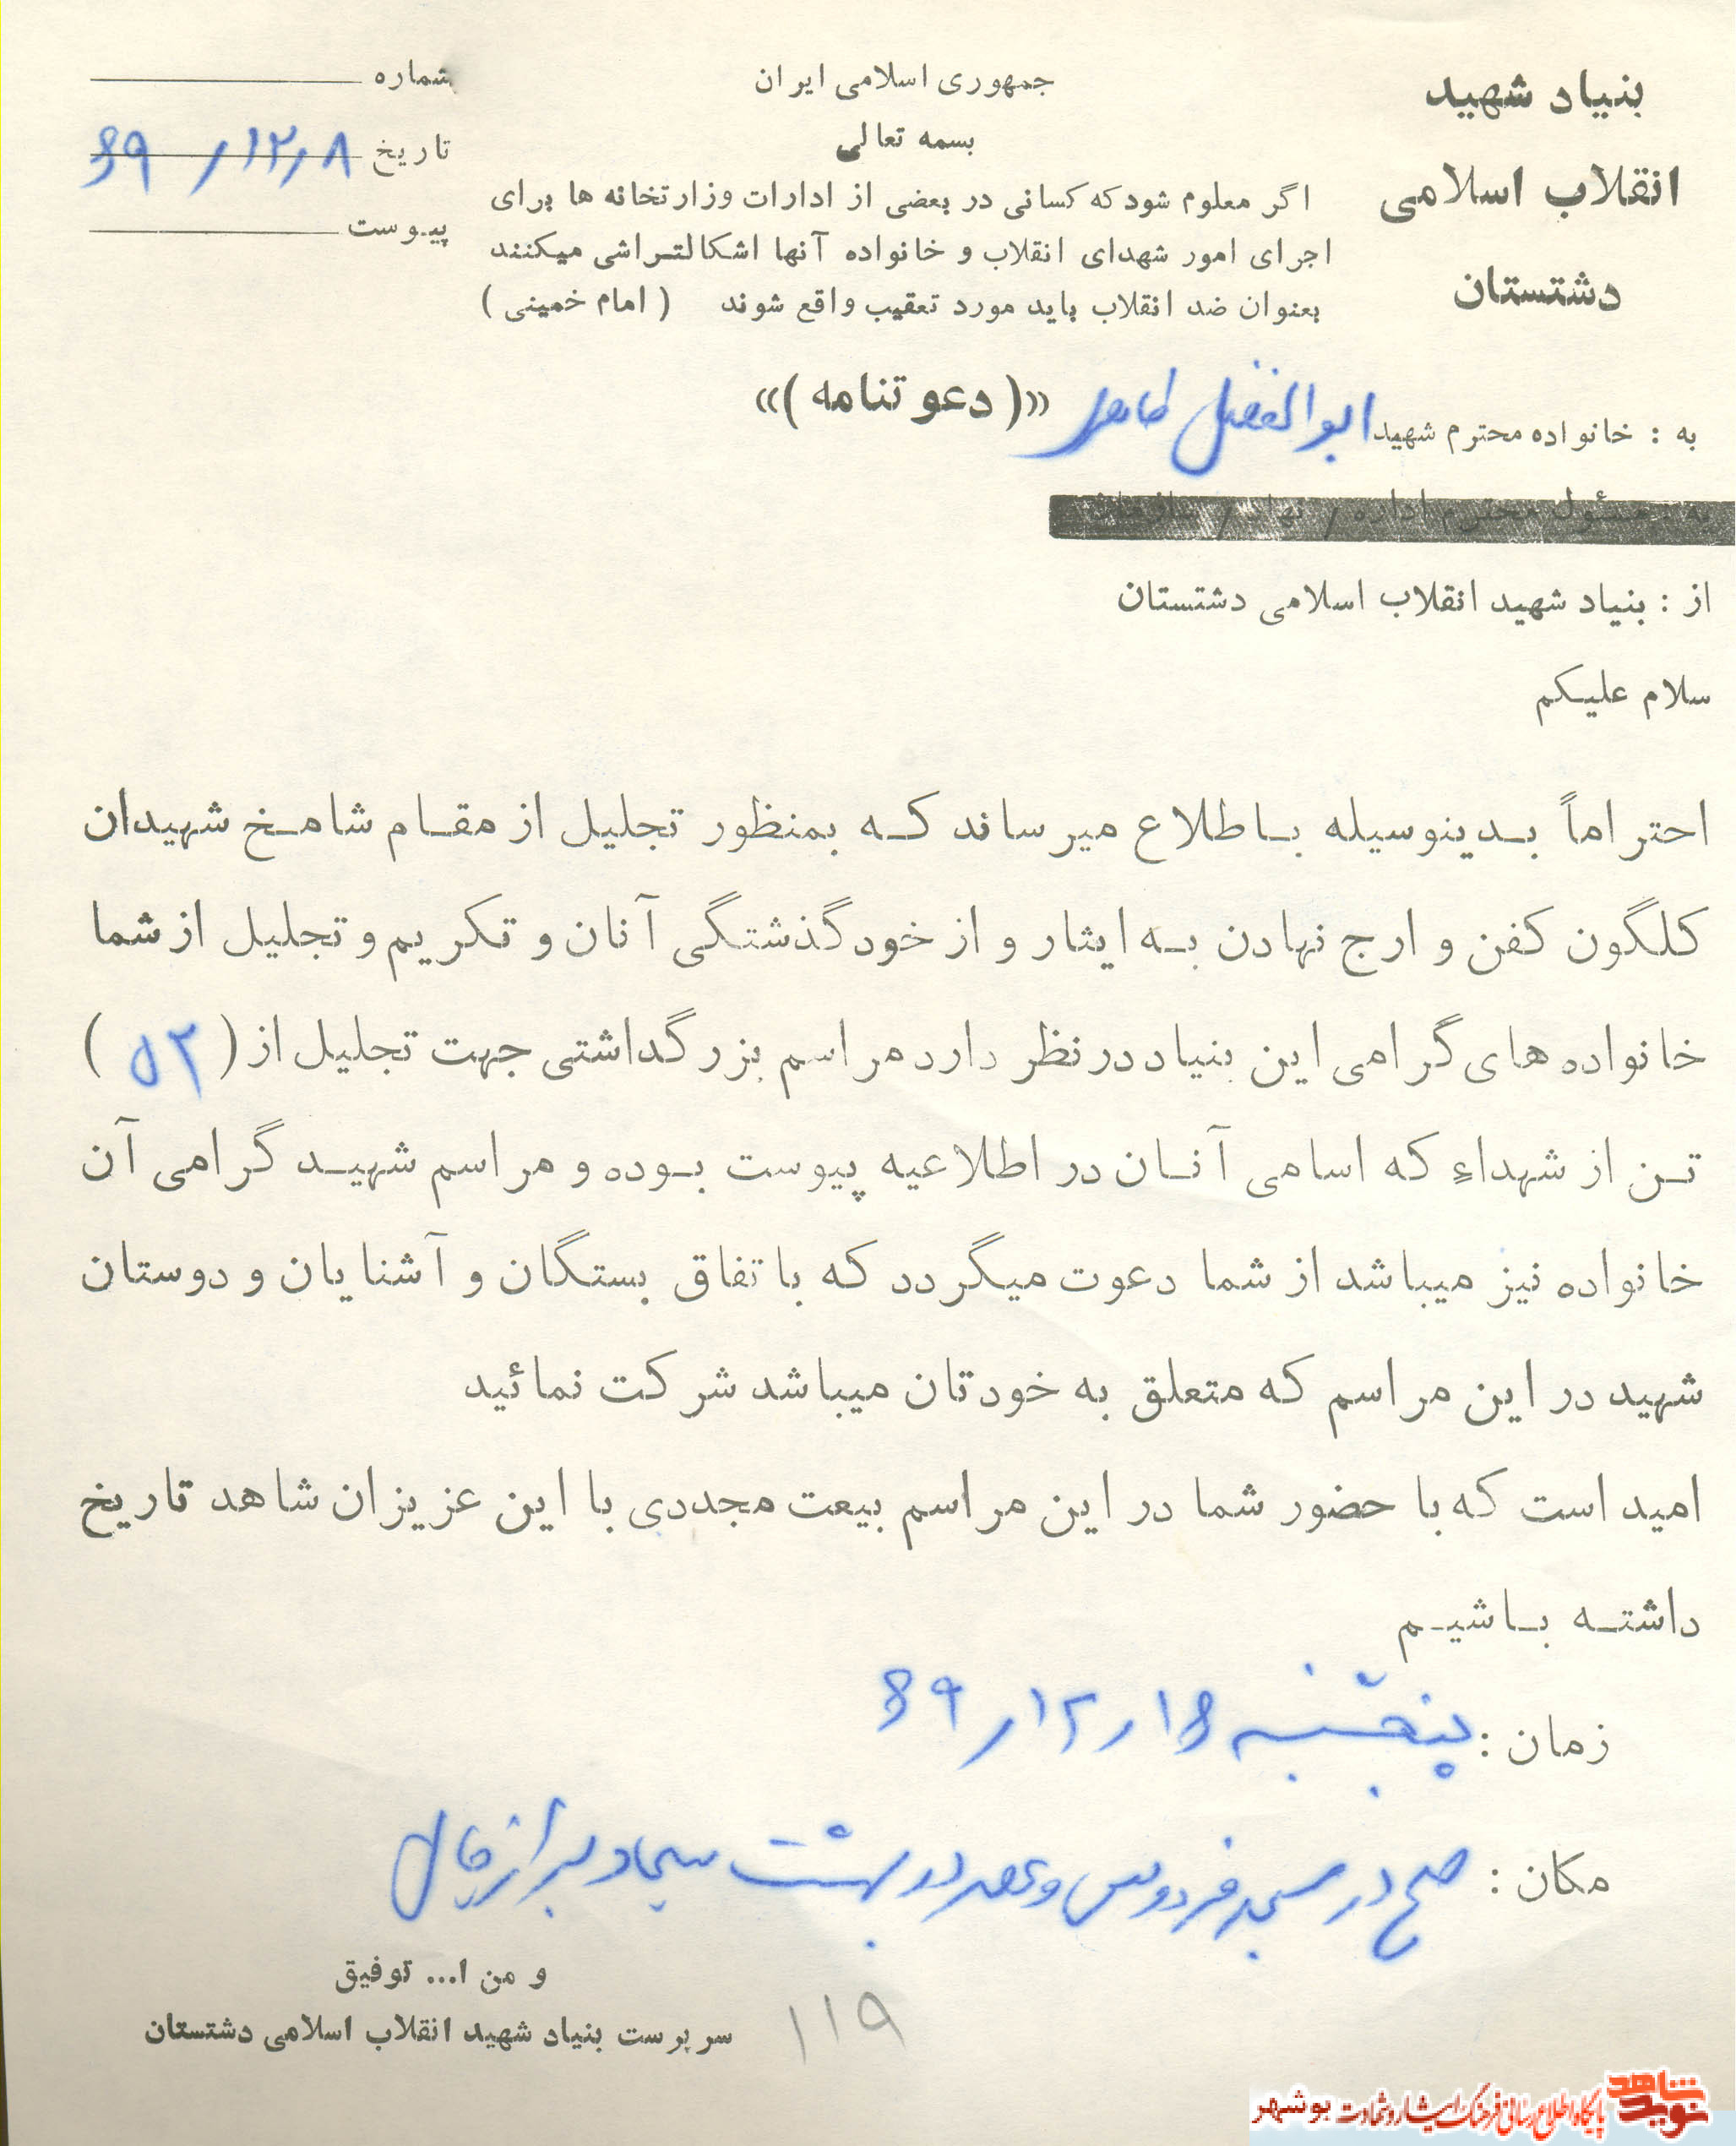 بنیاد شهید
انقلاب اسلامی
دشتستان
جمهوری اسلامی ایران
بسمه تعالی
اگر معلوم شود که کسانی در بعضی از ادارات وزارتخانه ها برای
اجرای امور شهدای انقلاب و خانواده آنها اشکالتراشی میکنند
بعنوان ضد انقلاب باید مورد تعقیب واقع شوند ( امام خمینی )
شماره
تاریخ ۶۹/۱۲/۸
پیوست
«( دعوتنامه )»
به : خانواده محترم شهید ابوالفضل طاهر
به : مسئول محترم اداره / نهاد / سازمان
از : بنیاد شهید انقلاب اسلامی دشتستان
سلام علیکم
احتراماً بدینوسیله باطلاع میرساند که بمنظور تجلیل از مقام شامخ شهیدان
کلگون کفن و ارج نهادن به ایثار و از خود گذشتگی آنان و تکریم و تجلیل از شما
خانواده های گرامی این بنیاد در نظر دارد مراسم بزرگداشتی جهت تجلیل از ( ۵۲ )
تن از شهداء که اسامی آنان در اطلاعیه پیوست بوده و مراسم شهید گرامی آن
خانواده نیز میباشد از شما دعوت میگردد که باتفاق بستگان و آشنایان و دوستان
شهید در این مراسم که متعلق به خودتان میباشد شرکت نمائید
امید است که با حضور شما در این مراسم بیعت مجددی با این عزیزان شاهد تاریخ
داشته باشیم
زمان : پنجشنبه ۶۹/۱۲/۱۶
مکان : صبح در مسجد فردوس و عصر در بهشت سجاد برازجان
و من ا... توفیق
سرپرست بنیاد شهید انقلاب اسلامی دشتستان
۱۱۹
نوید شاهد
پایگاه اطلاع رسانی فرهنگ ایثار و شهادت بوشهر